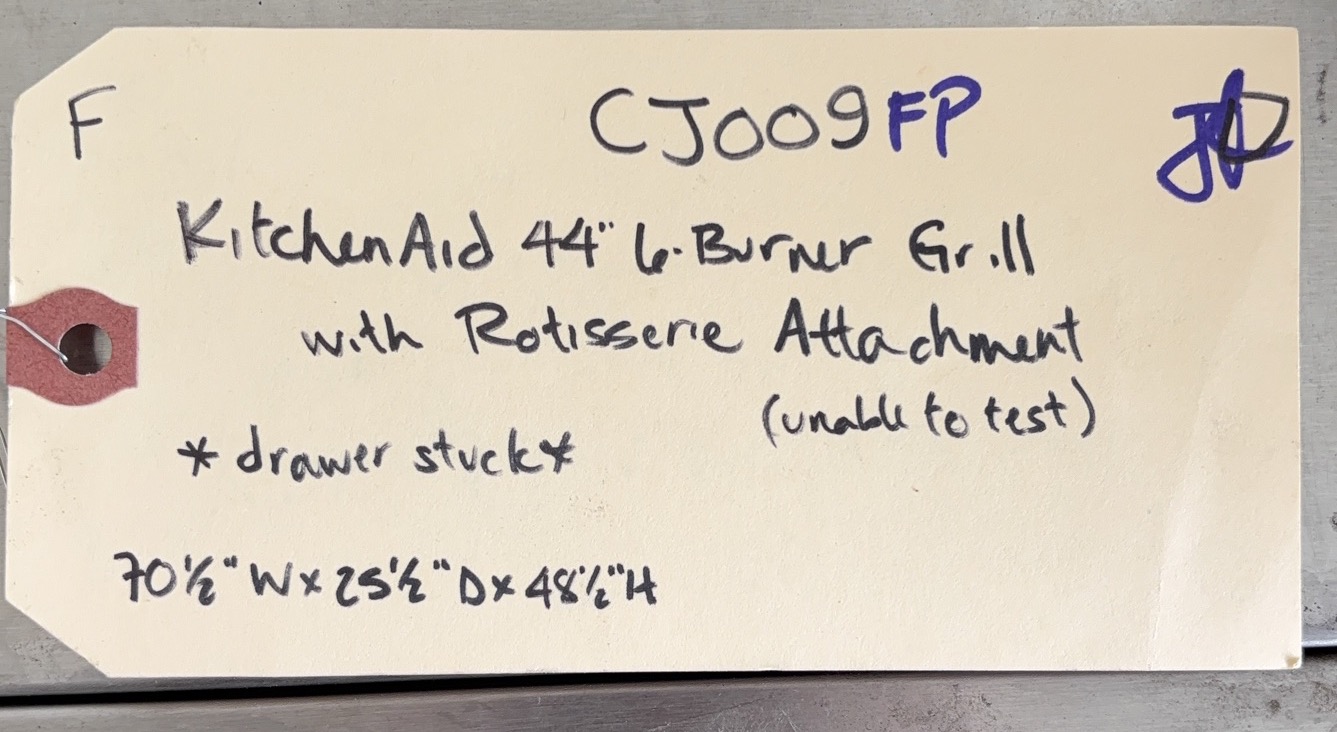 F CJ009FP
KitchenAid 44" 6-Burner Grill
with Rotisserie Attachment
(unable to test)
*drawer stuck*
70½" W x 25½" D x 48½" H